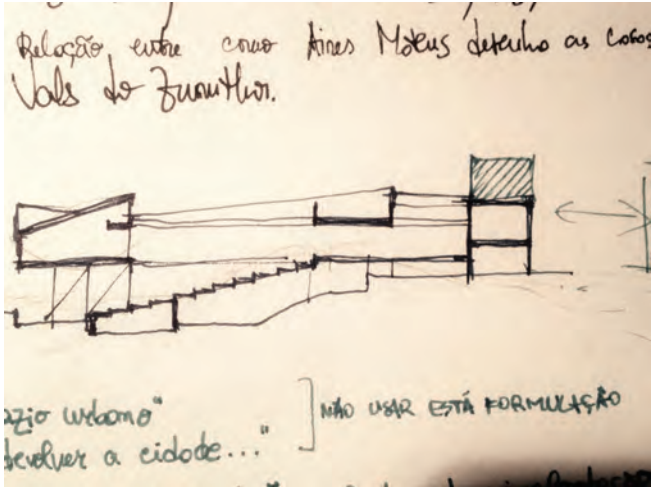 Relação entre como Aires Mateus desenha as casas
Vals do Zumthor.
azio urbano"
devolver a cidade..."
NÃO USAR ESTÁ FORMULAÇÃO